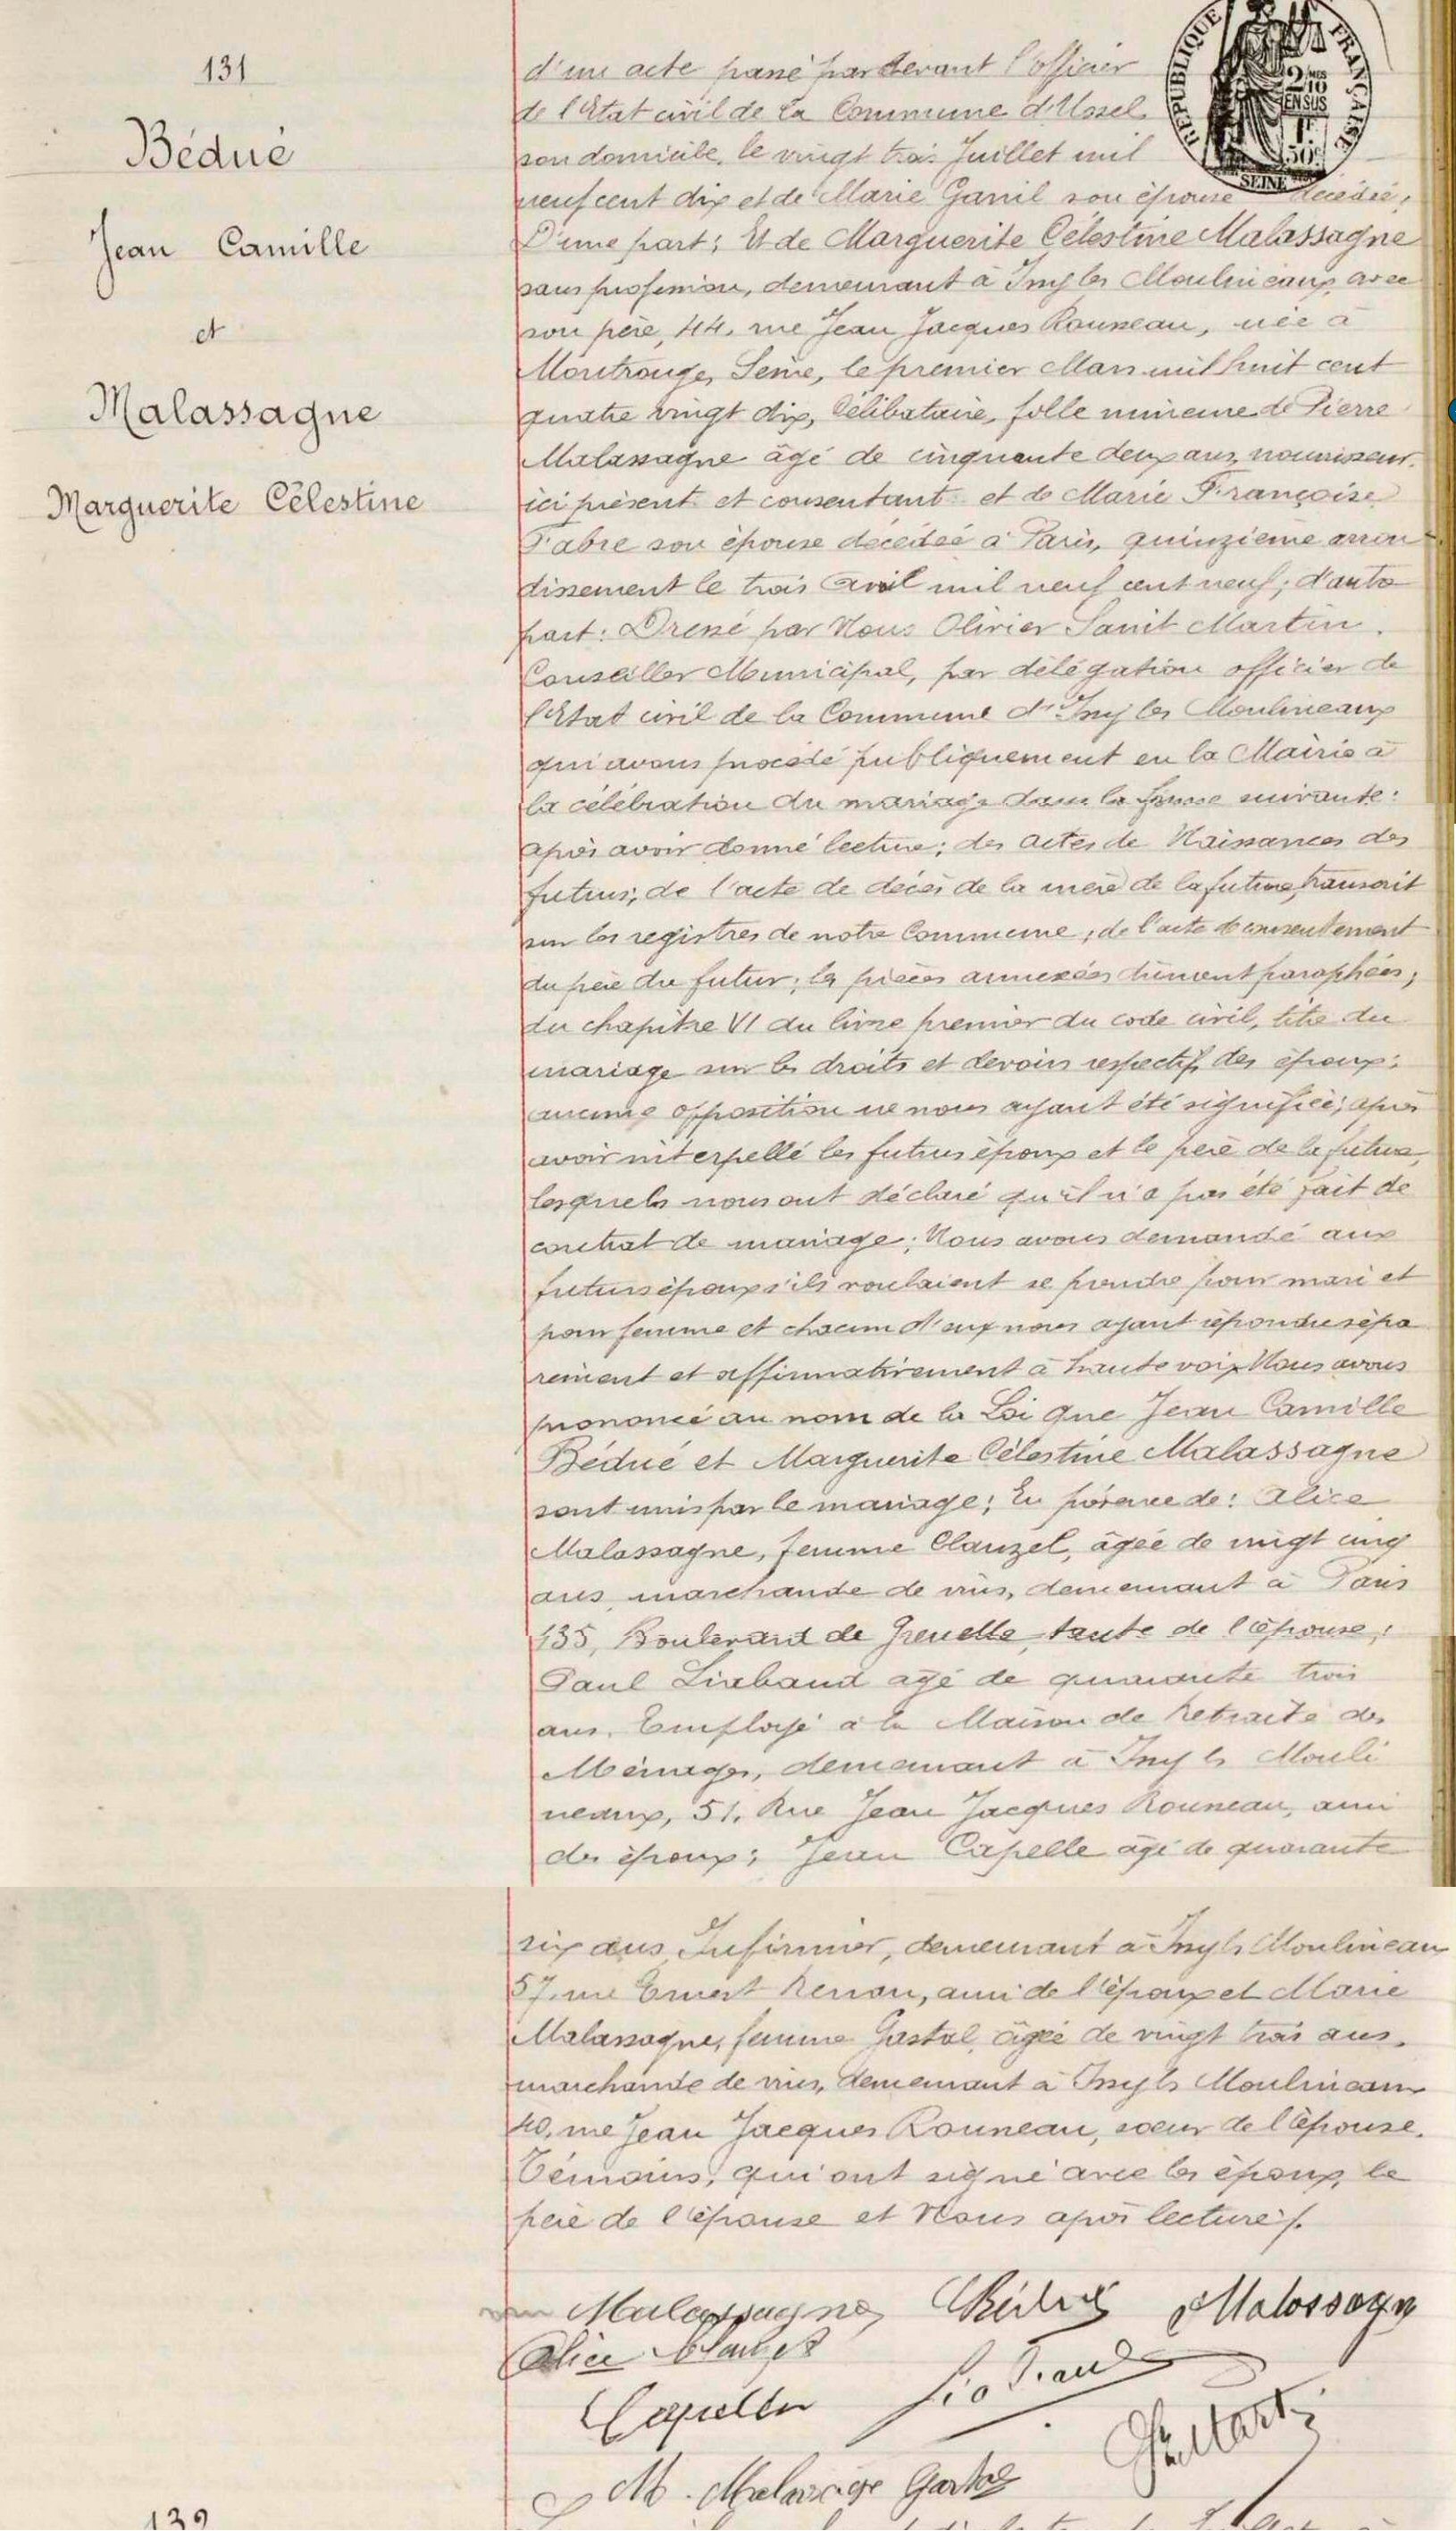 131
Bédué
Jean Camille
et
Malassagne
Marguerite Célestine
RÉPUBLIQUE FRANÇAISE
SEINE
d'un acte passé pardevant l'officier
de l'Etat civil de la Commune d'Ussel
son domicile, le vingt trois Juillet mil
neuf cent dix et de Marie Ganil son épouse décédée;
D'une part; Et de Marguerite Célestine Malassagne
sans profession, demeurant à Issy les Moulineaux avec
son père, 44, rue Jean Jacques Rousseau, née à
Montrouge, Seine, le premier Mars mil huit cent
quatre vingt dix, Célibataire, fille mineure de Pierre
Malassagne âgé de cinquante deux ans, nourrisseur
ici présent et consentant et de Marie Françoise
Fabre son épouse décédée à Paris, quinzième arron
dissement le trois Avril mil neuf cent neuf; d'autre
part: Dressé par Nous Olivier Saint Martin,
Conseiller Municipal, par délégation officier de
l'Etat civil de la Commune d'Issy les Moulineaux
qui avons procédé publiquement en la Mairie à
la célébration du mariage dans la forme suivante:
après avoir donné lecture; des actes de Naissances des
futurs, de l'acte de décès de la mère de la future, transcrit
sur les registres de notre Commune; de l'acte de consentement
du père du futur; les pièces annexées dûment paraphées;
du chapitre VI du livre premier du code civil, titre du
mariage sur les droits et devoirs respectifs des époux;
aucune opposition ne nous ayant été signifiée; après
avoir interpellé les futurs époux et le père de la future,
lesquels nous ont déclaré qu'il n'a pas été fait de
contrat de mariage; Nous avons demandé aux
futurs époux s'ils voulaient se prendre pour mari et
pour femme et chacun d'eux nous ayant répondu sépa
rément et affirmativement à haute voix Nous avons
prononcé au nom de la Loi que Jean Camille
Bédué et Marguerite Célestine Malassagne
sont unis par le mariage; En présence de: Alice
Malassagne, femme Clauzel, âgée de vingt cinq
ans, marchande de vins, demeurant à Paris
135, Boulevard de Grenelle tante de l'épouse;
Paul Liabaud âgé de quarante trois
ans, Employé à la Maison de Retraite des
Ménages, demeurant à Issy les Mouli
neaux, 51, Rue Jean Jacques Rousseau, ami
des époux; Jean Capelle âgé de quarante
six ans Infirmier, demeurant à Issy les Moulineaux
57, rue Ernest Renan, ami de l'époux et Marie
Malassagne, femme Gastal, âgée de vingt trois ans,
marchande de vins, demeurant à Issy les Moulineaux
40, rue Jean Jacques Rousseau, soeur de l'épouse,
Témoins, qui ont signé avec les époux, le
père de l'épouse et Nous après lecture.
Malassagne Bédué Malassagne
Alice Clauzel
Capelle Liabaud
StMartin
M. Malassagne Gastal
132